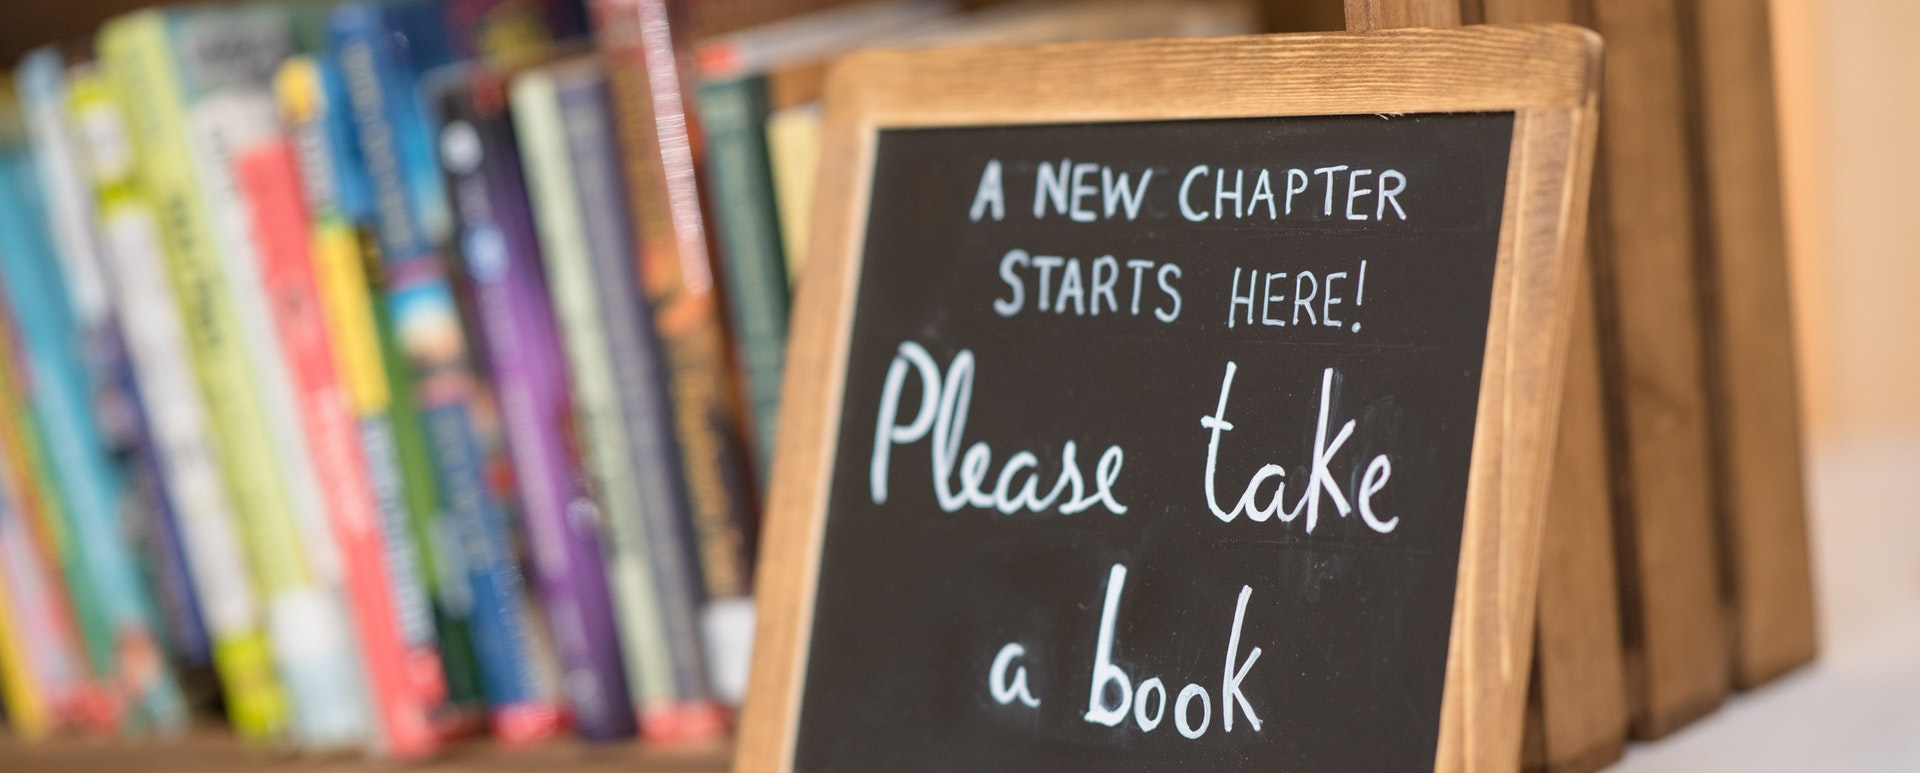 A NEW CHAPTER
STARTS HERE!
Please take
a book